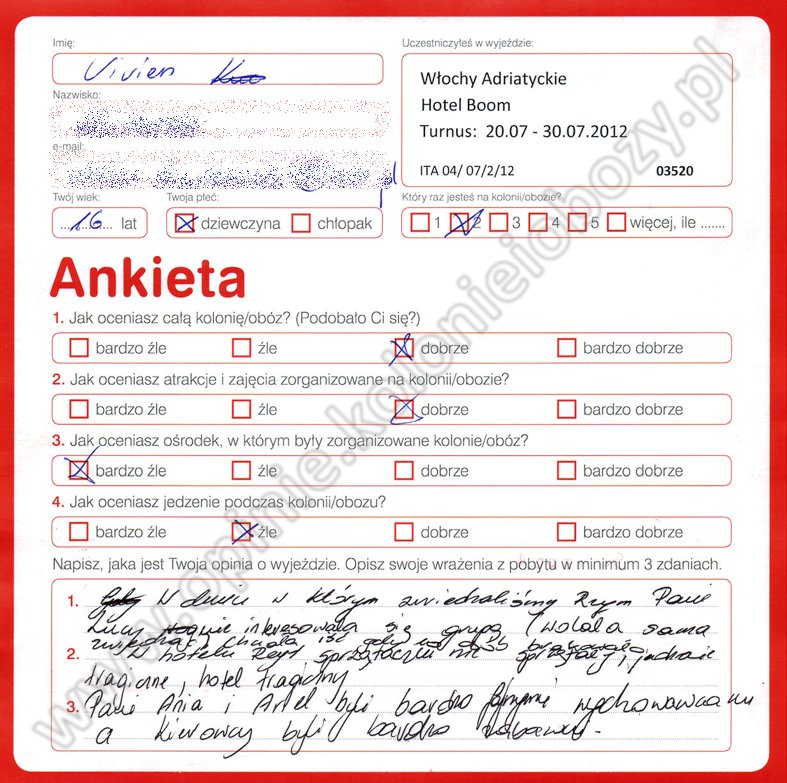 Imię:
Vivien
Uczestniczyłeś w wyjeździe:
Włochy Adriatyckie
Hotel Boom
Turnus: 20.07 - 30.07.2012
ITA 04/ 07/2/12 03520
Nazwisko:
e-mail:
Twój wiek:
...16... lat
Twoja płeć:
dziewczyna chłopak
Który raz jesteś na kolonii/obozie?
1 2 3 4 5 więcej, ile .......
Ankieta
1. Jak oceniasz całą kolonię/obóz? (Podobało Ci się?)
bardzo źle źle dobrze bardzo dobrze
2. Jak oceniasz atrakcje i zajęcia zorganizowane na kolonii/obozie?
bardzo źle źle dobrze bardzo dobrze
3. Jak oceniasz ośrodek, w którym były zorganizowane kolonie/obóz?
bardzo źle źle dobrze bardzo dobrze
4. Jak oceniasz jedzenie podczas kolonii/obozu?
bardzo źle źle dobrze bardzo dobrze
Napisz, jaka jest Twoja opinia o wyjeździe. Opisz swoje wrażenia z pobytu w minimum 3 zdaniach.
1. W dniu w którym zwiedzaliśmy Rzym Pani
Lucy interesowała się grupą (wolała sama
zwiedzać, iść gdy
2. W hotelu sprzątaczki nie sprzątały, jedzenie
tragiczne, hotel tragiczny
3. Pani Ania i Ariel byli bardzo fajnymi wychowawcami
a kierowcy byli bardzo zabawni.
www.opinie.kolonieiobozy.pl